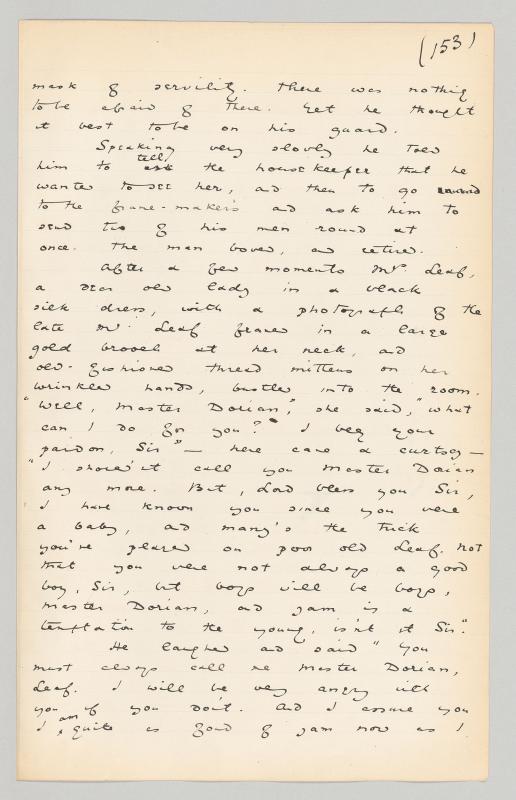 (153)
mask of servility. There was nothing
to be afraid of there. Yet he thought
it best to be on his guard.
Speaking very slowly he told
him to ask tell the housekeeper that he
wanted to see her, and then to go round
to the frame-maker's and ask him to
send two of his men round at
once. The man bowed, and retired.
After a few moments Mrs Leaf,
a dear old lady in a black
silk dress, with a photograph of the
late Mr. Leaf framed in a large
gold brooch at her neck, and
old-fashioned thread mittens on her
wrinkled hands, bustled into the room.
"Well, Master Dorian," she said, "what
can I do for you? I beg your
pardon, Sir" — here came a curtsey —
"I should'nt call you Master Dorian
any more. But, Lord bless you Sir,
I have known you since you were
a baby, and many's the trick
you've played on poor old Leaf. Not
that you were not always a good
boy, Sir, but boys will be boys,
Master Dorian, and jam is a
temptation to the young, is'nt it Sir".
He laughed and said "You
must always call me Master Dorian,
Leaf. I will be very angry with
you if you don't. And I assure you
I am quite as fond of jam now as I